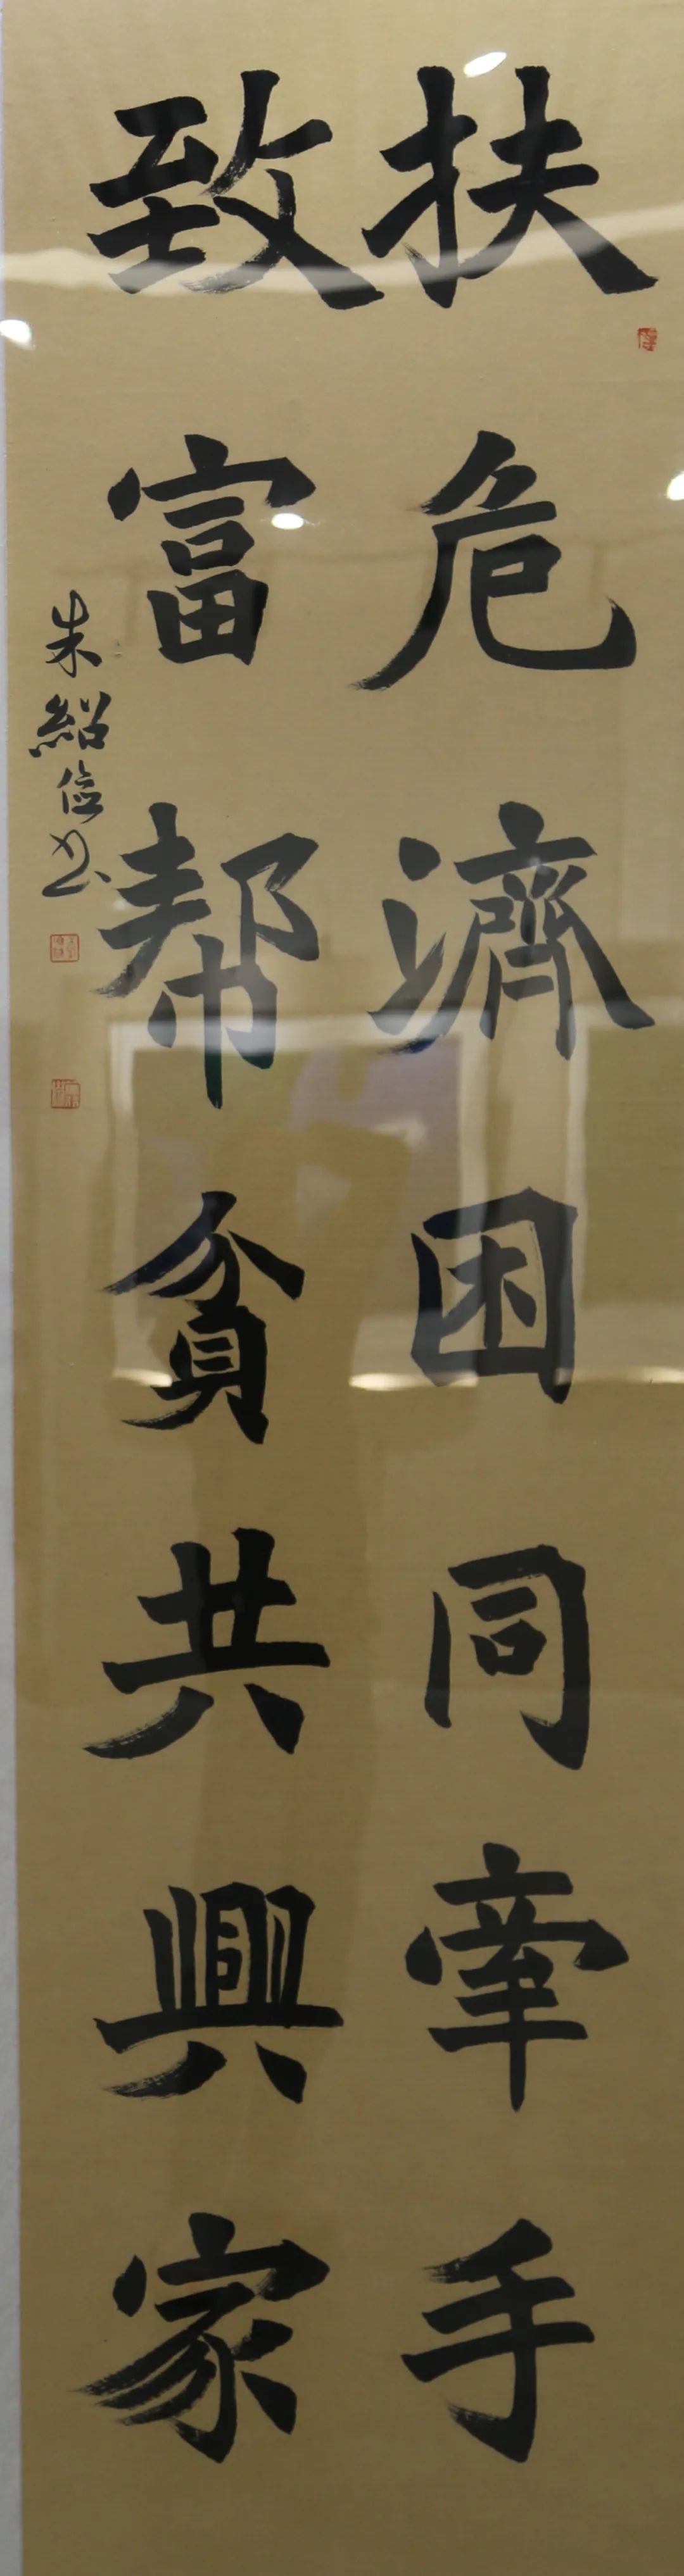 扶危濟困同牽手
致富帮貧共興家
朱紹俭书